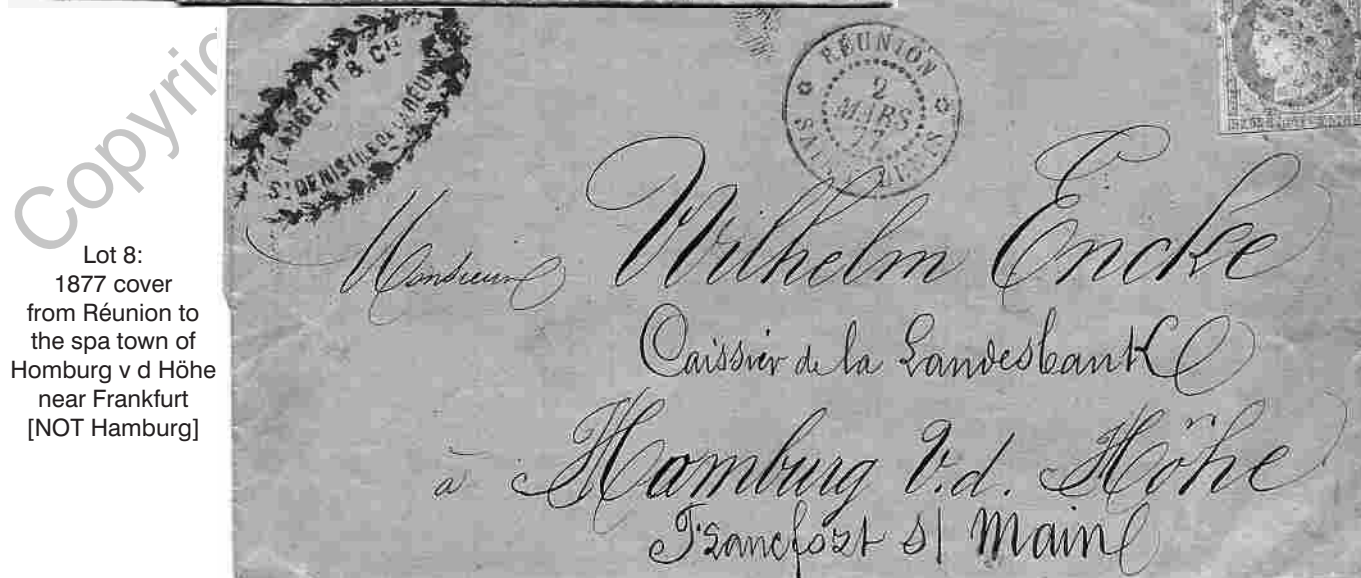 Copyri
Lot 8:
1877 cover
from Réunion to
the spa town of
Homburg v d Höhe
near Frankfurt
[NOT Hamburg]
LAUBERT & Cie
St DENIS ILE DE LA RÉUNION
RÉUNION
2
MARS
77
SAINT-DENIS
Monsieur Wilhelm Encke
Caissier de la Landesbank
à Homburg V. d. Höhe
Francfort s/ Main